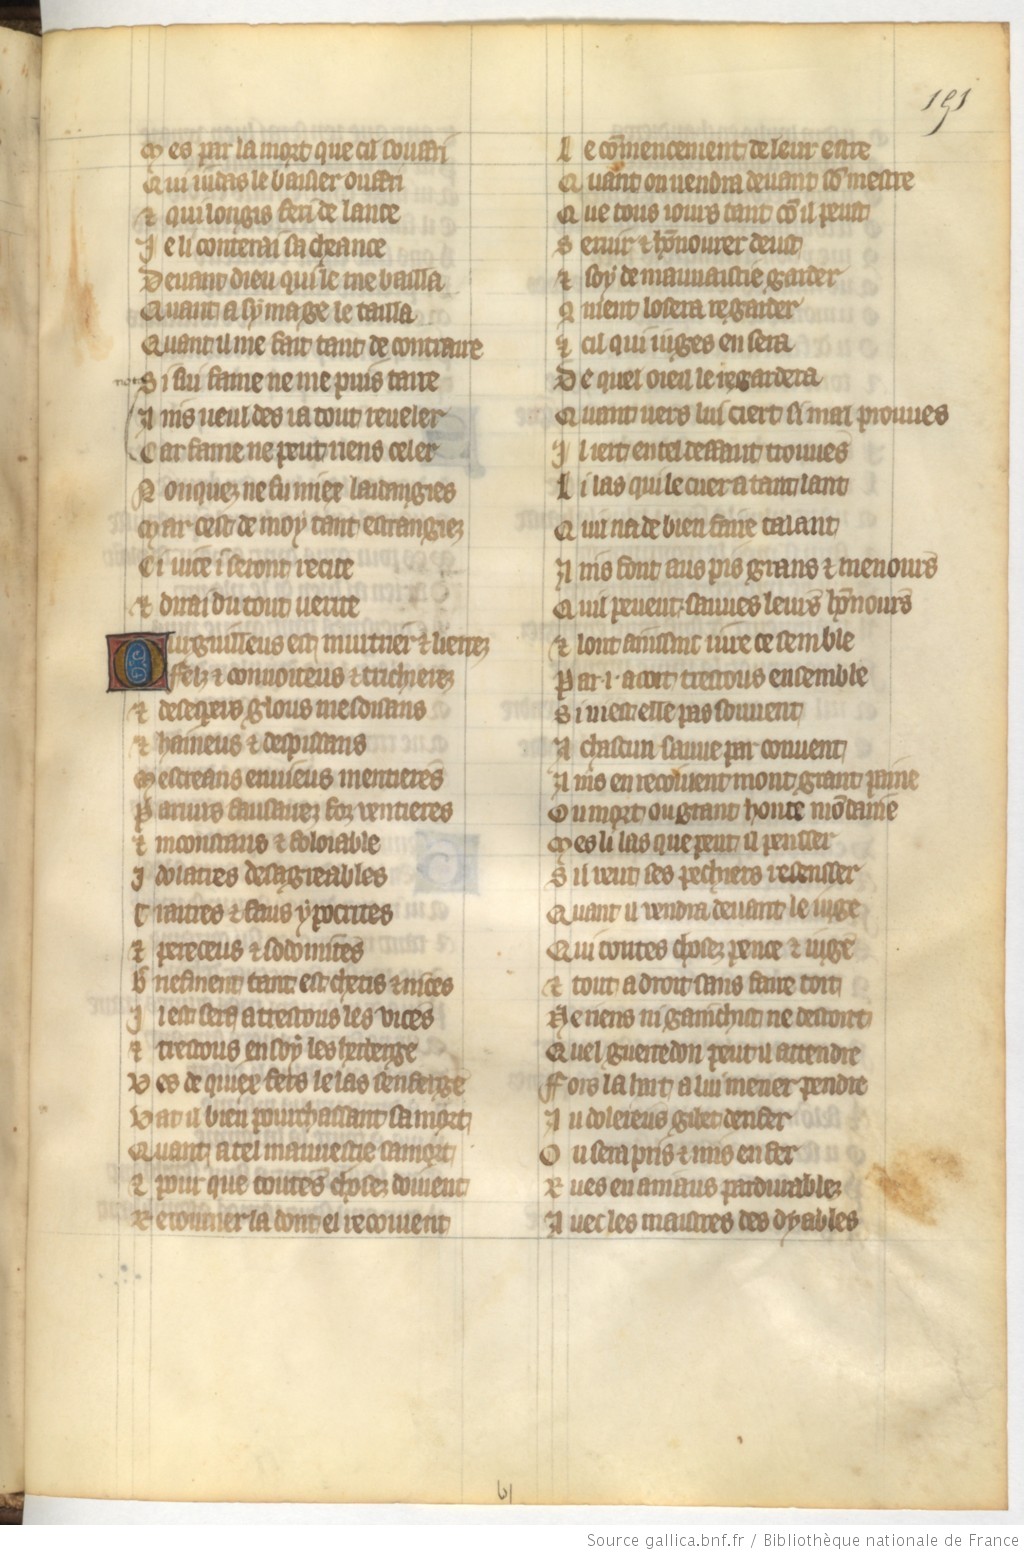 191
Mes par la mort que cil souffri
Qui iudas le baisier ouffri
⁊ qui longis feri de lance
Je li conterai sa cheance
Devant dieu qui le me bailla
Quant a sȳmage le tailla
Quant il me fait tant de contraire
Si sui fame ne me puis taire
Ains veul des ia tout reveler
Car fame ne peut riens celer
Nonquez ne fu miex laidangies
Mar cest de moy tant estrangiez
Ci vice i seront recite
⁊ dirai du tout verite
Ourguilleus est murtrier ⁊ lierrez
Felz ⁊ convoiteus ⁊ trichierez
⁊ desespers glous mesdisans
⁊ haineus ⁊ despisans
Mescreans envieus mentieres
Pariurs faussairez foz ventieres
⁊ inconstans ⁊ foloiable
Idolatres desagreables
Traitres ⁊ faus ypocrites
⁊ pereceus ⁊ sodomites
Briefment tant est chetis ⁊ nices
Il est sers a trestous les vices
⁊ trestous en soy les herberge
Ves de quiex fers le las senferge
Vat il bien pourchassant sa mort
Quant a tel mauvestie samort
⁊ pour que toutes chosez doivent
Retourner la dont el recoivent
Le cōmencement de leur estre
Quant on vendra devant sō mestre
Que tous iours tant cō il peust
Servir ⁊ hōnourer deust
⁊ soy de mauvaistie garder
Cment losera regarder
⁊ cil qui iuges en sera
De quel oieil le regardera
Quant vers lui ciert si mal prouves
Il iert en tel deffaut trouves
Li las qui le cuer a tant lant
Qui na de bien faire talant
Ains font aus pis grans ⁊ menours
Quil pevent sauves leurs hōnours
⁊ lont ainssint iure ce semble
Par .i. acort trestous ensemble
Si nest elle pas souvent
A chascun sauve par convent
Ains en recoivent mont grant paine
Ou mort ou grant honte mōdaine
Mes li las que peut il pensser
Sil veut ses pechiers recensser
Quant il vendra devant le iuge
Qui toutes chosez pence ⁊ iuge
⁊ tout a droit sans faire tort
Ne riens ni ganchist ne destort
Quel guerredon peut il attendre
Fors la hart a lui mener pendre
Au dolereus gibet denfer
Ou sera pris ⁊ mis en fer
Rives en aniaus pardurablez
Avec les maistres des dyables
bl
Source gallica.bnf.fr / Bibliothèque nationale de France